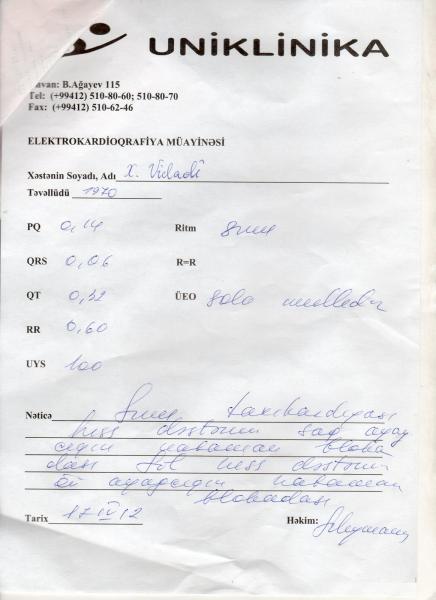 UNİKLİNİKA
B.Ağayev 115
Tel: (+99412) 510-80-60; 510-80-70
Fax: (+99412) 510-62-46
ELEKTROKARDİOQRAFİYA MÜAYİNƏSİ
Xəstənin Soyadı, Adı X. Vidadi
Təvəllüdü 1970
PQ 0,14 Ritm sinus
QRS 0,06 R=R
QT 0,32 ÜEO sola meyllidir
RR 0,60
UYS 100
Nəticə Sinus taxikardiyası
hiss dəstəsinin sağ ayaq
cığın natamam bloka
dası Sol hiss dəstəsinin
ön ayaqcığın natamam
blokadası
Tarix 17 IV 12 Həkim: Süleymanov